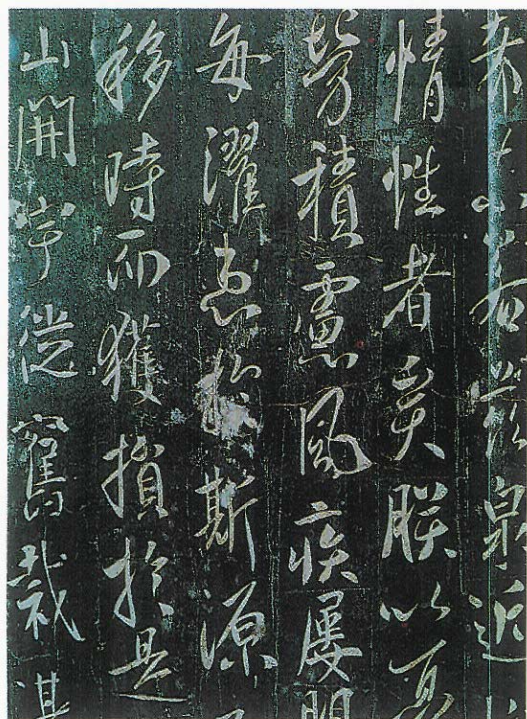 若茲泉近
情性者矣朕以憂
勞積慮風疾屢嬰
每濯患於斯源不
移時而獲損於是
山開宇從舊裁基